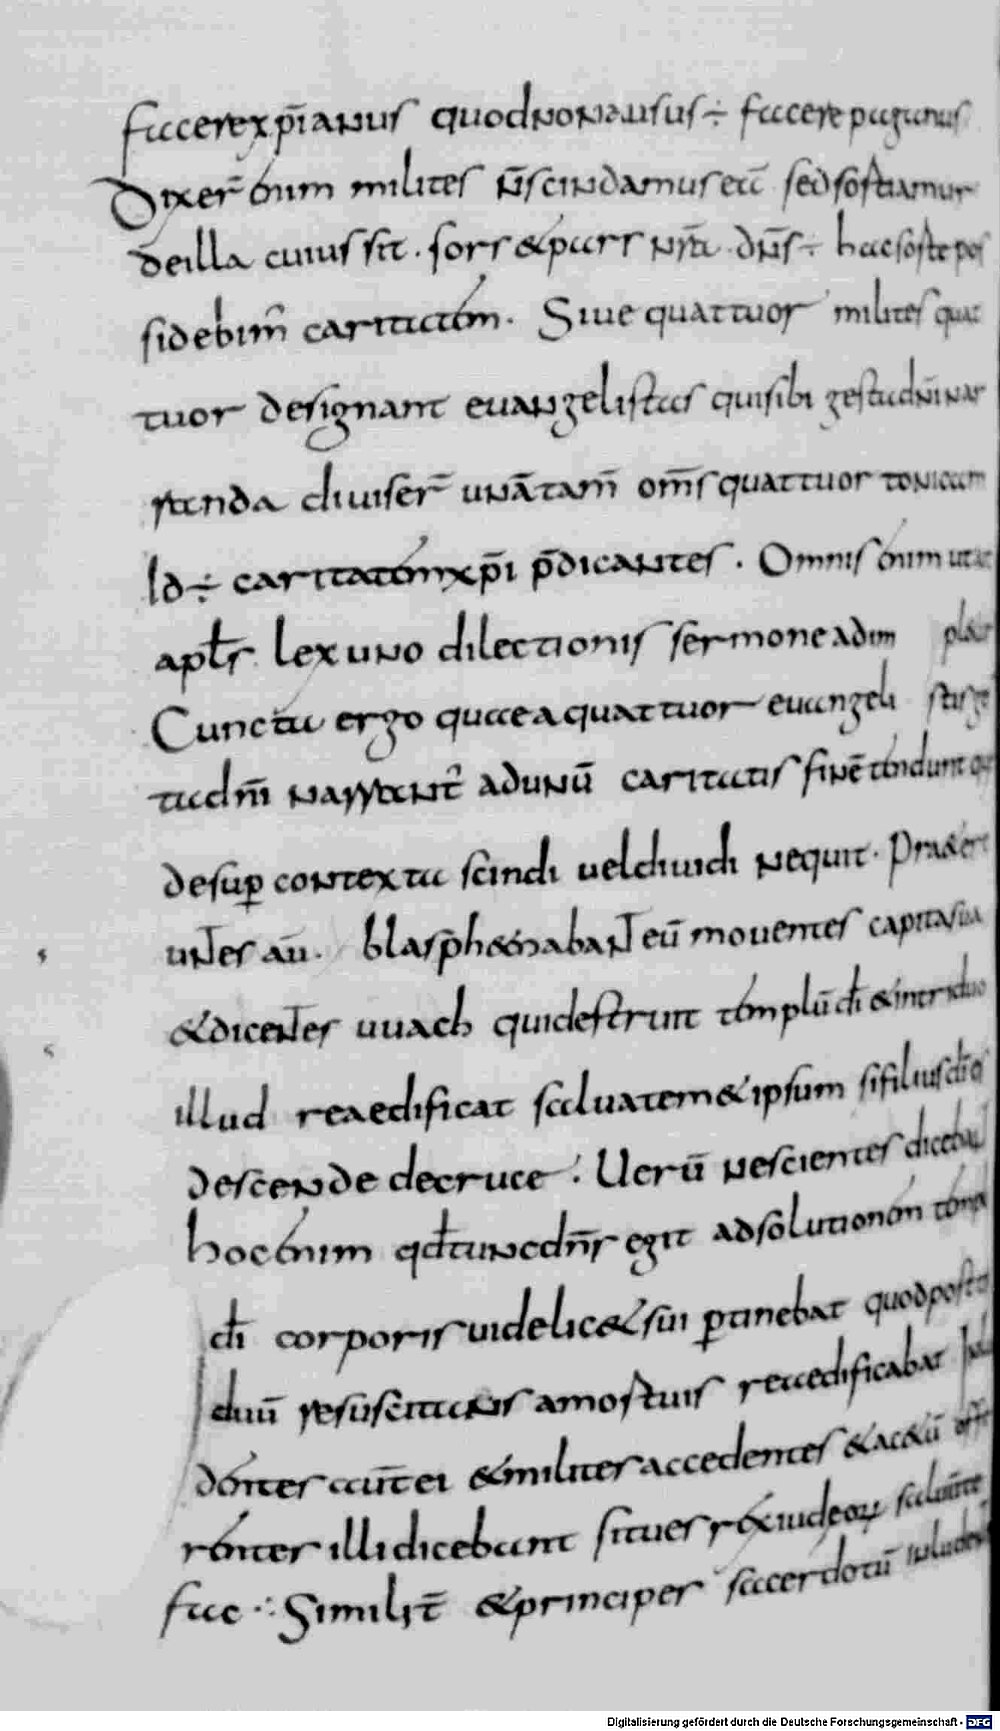 facere xp̄ianus quod non ausus ÷ facere paganus
Dixer̄ enim milites n̄ scindamus eā sed sortiamur
de illa cuius sit . sors & pars nr̄a . dn̄s ÷ hac sorte pos
sidebim̄ caritatem . Siue quattuor milites quat
tuor designant euangelistas qui sibi gesta dn̄i nar
randa diuiser̄ unā tam̄ om̄s quattuor tonicam
Id ÷ caritatem xp̄i p̄dicantes . Omnis enim ut ait
apl̄s lex uno dilectionis sermone adim pletur
Cuncta ergo quae a quattuor euangeli stis ges
ta dn̄i narrant̄ ad unū caritatis finē tendunt quę
desup̱ contexta scindi uel diuidi nequit . Praeter
unt̄es au̅ . blasphemabant̄ eū mouentes capita sua
& dicent̄es uuach qui destruit templū dī & in triduo
illud reaedificat salua temet ipsum si filius dī es
descende de cruce . Uerū nescientes dicebant
hoc enim qd̄ tunc dn̄s egit ad solutionem templi
dī corporis uidelic& sui p̱tinebat quod post
duū resuscitans a mortuis reaedificabat
denter aūt ei & milites accedentes & acetū offe
rentes illi dicebant si tu es rex iudeorum saluū te
fac .·. Similit̄ & principes sacerdotū inludentes